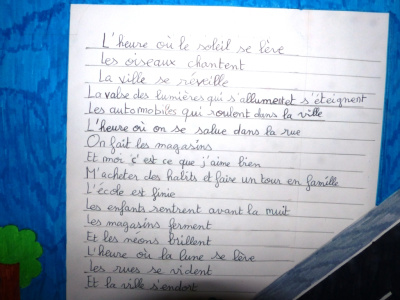 L'heure où le soleil se lève
Les oiseaux chantent
La ville se réveille
La valse des lumières qui s'allument et s'éteignent
Les automobiles qui roulent dans la ville
L'heure où on se salue dans la rue
On fait les magasins
Et moi c'est ce que j'aime bien
M'acheter des habits et faire un tour en famille
L'école est finie
Les enfants rentrent avant la nuit
Les magasins ferment
Et les néons brillent
L'heure où la lune se lève
Les rues se vident
Et la ville s'endort